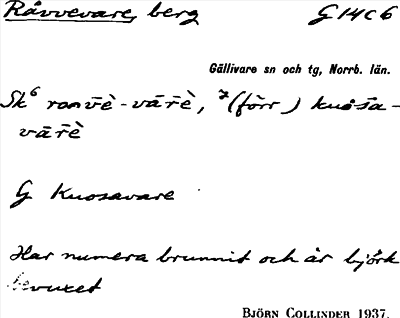 Råvvevare, berg G14c6
Gällivare sn och tg, Norrb. län.
Sk⁶ ronvè-vārè, ⁷(förr) kuåsa-
vārè
G Kuosavare
Har numera brunnit och är björk
bevuxet
BJÖRN COLLINDER 1937.